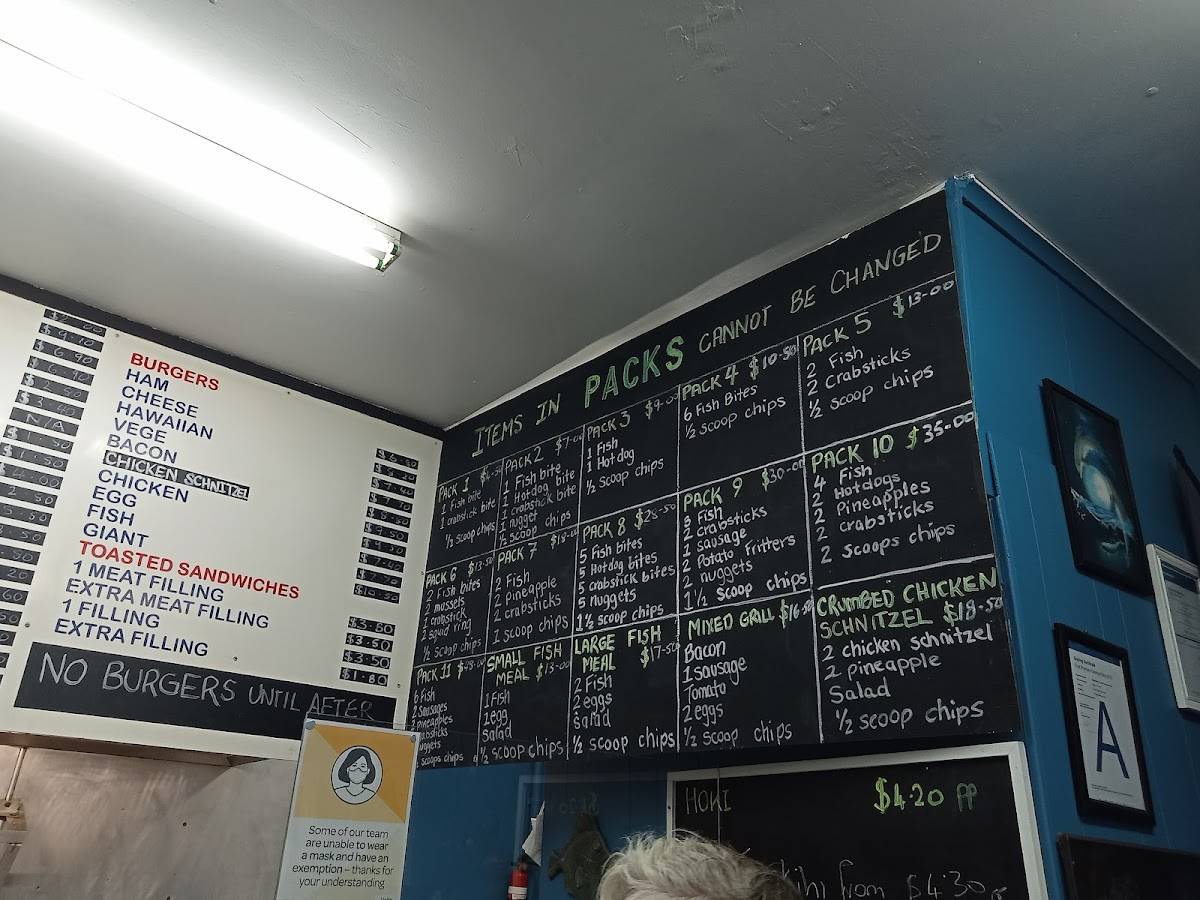 $9.10
$6.90
N/A
BURGERS
HAM
CHEESE
HAWAIIAN
VEGE
BACON
CHICKEN SCHNITZEL
CHICKEN
EGG
FISH
GIANT
TOASTED SANDWICHES
1 MEAT FILLING
EXTRA MEAT FILLING
1 FILLING
EXTRA FILLING
$3.50
$3.50
$1.80
NO BURGERS UNTIL AFTER
ITEMS IN PACKS CANNOT BE CHANGED
PACK 1
1 Fish bite
1 crabstick bite
1/2 scoop chips
PACK 2 $7.00
1 Fish bite
1 Hotdog bite
1 crabstick bite
1 nugget
1/2 scoop chips
PACK 3
1 Fish
1 Hotdog
1/2 scoop chips
PACK 4 $10.50
6 Fish Bites
1/2 scoop chips
PACK 5 $13.00
2 Fish
2 Crabsticks
1/2 scoop chips
PACK 6 $13.50
2 Fish bites
2 mussels
1 crabstick
2 squid ring
1/2 scoop chips
PACK 7
2 Fish
2 Pineapple
2 crabsticks
1 scoop chips
PACK 8 $28.50
5 Fish bites
5 Hotdog bites
5 crabstick bites
5 nuggets
1 1/2 scoop chips
PACK 9 $30.00
Fish
2 crabsticks
1 sausage
2 Potato Fritters
2 nuggets
1 1/2 scoop chips
PACK 10 $35.00
4 Fish
2 Hotdogs
2 Pineapples
2 crabsticks
2 scoops chips
PACK 11
Fish
Sausages
pineapples
scoops chips
SMALL FISH
MEAL $13.00
1 Fish
1 egg
Salad
1/2 scoop chips
LARGE FISH
MEAL $17.50
2 Fish
2 eggs
Salad
1/2 scoop chips
MIXED GRILL $16.50
Bacon
1 sausage
Tomato
2 eggs
1/2 scoop chips
CRUMBED CHICKEN
SCHNITZEL $18.50
2 chicken schnitzel
2 pineapple
Salad
1/2 scoop chips
HOKI $4.20 PP
from $4.30
Some of our team
are unable to wear
a mask and have an
exemption – thanks for
your understanding
A